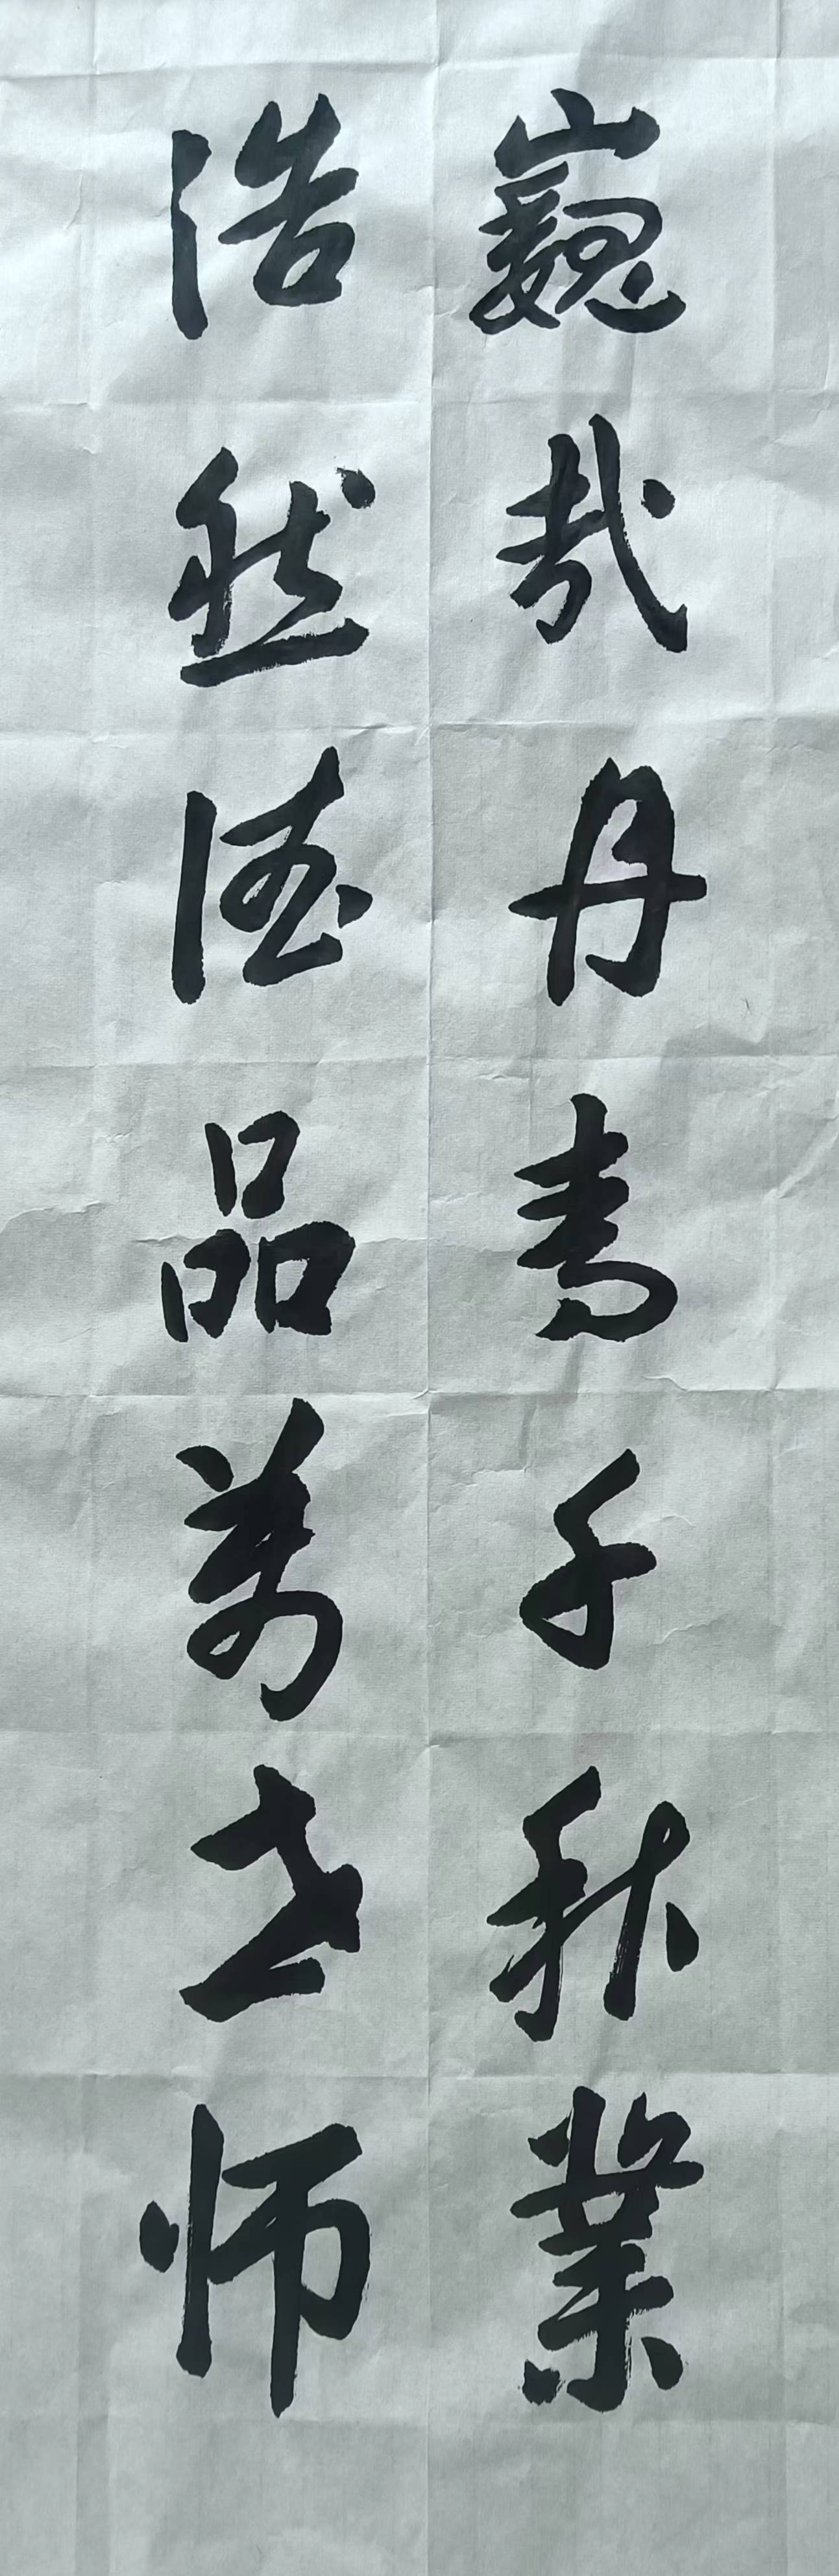 巍哉丹青千秋業
浩然德品萬世师